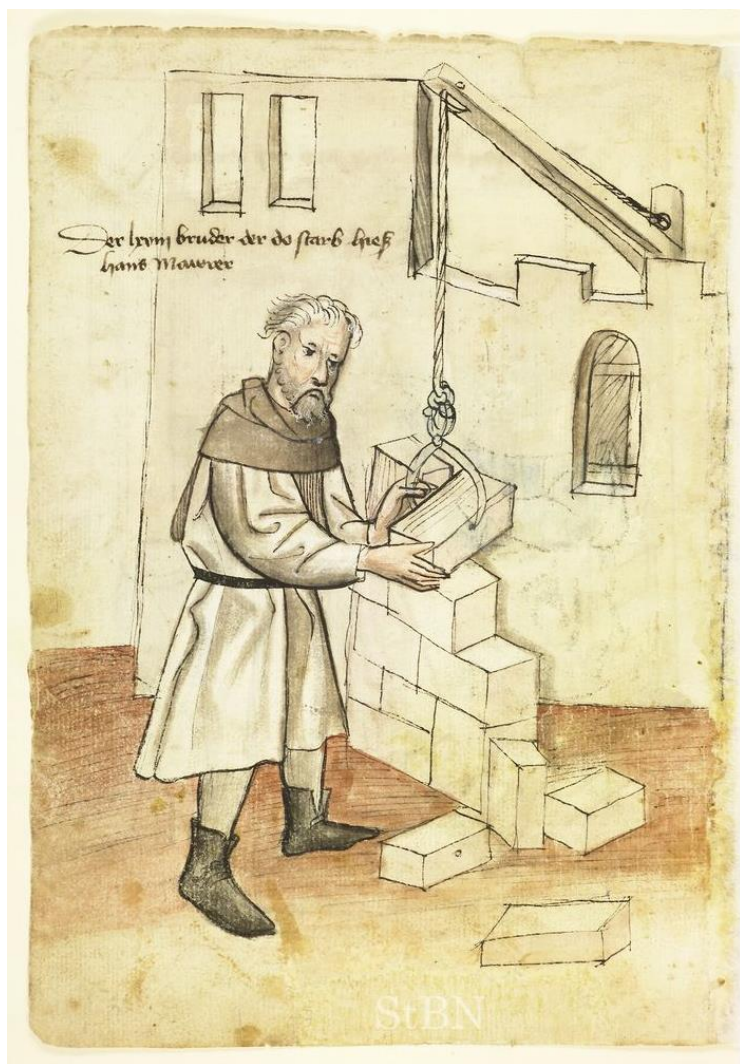 Der lxviii bruder der do starb hieß
hans Mawrer
StBN